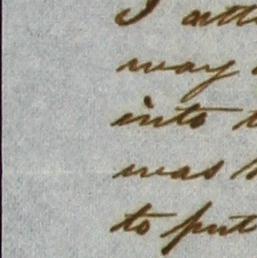 I
way
into
was
to put